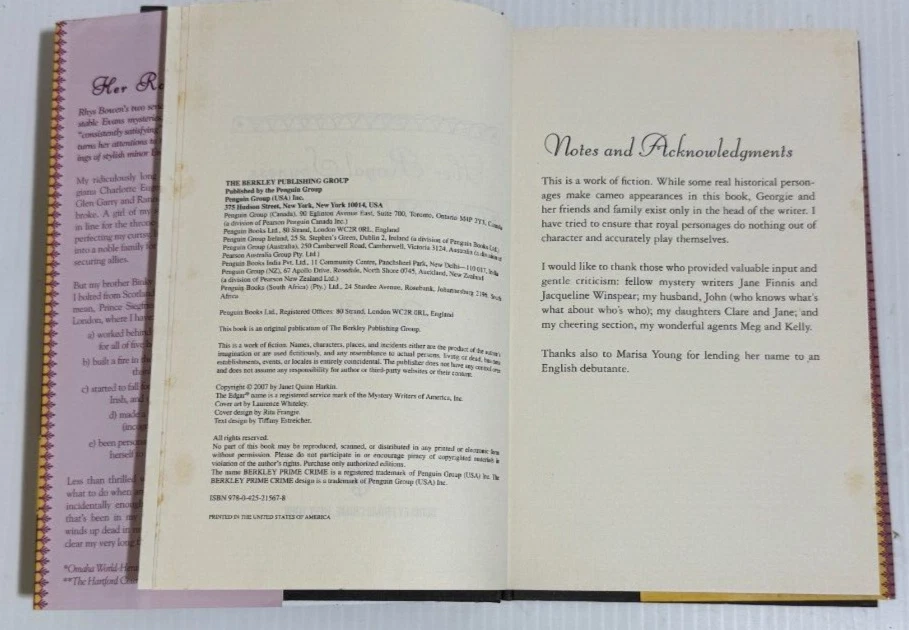 Her Ro
Rhys Bowen's two
stable Evans mysteries
"consistently satisfying"
turns her attentions to
ings of stylish minor
My ridiculously long
giana Charlotte
Glen Garry and
broke. A girl of my
in line for the throne
perfecting my
into a noble family
securing allies.
But my brother Binky
I bolted from Scotland
mean, Prince
London, where I have
a) worked behind
for all of five
b) built a fire in the
c) started to fall
Irish, and
d) made a
e) been
herself
Less than thrilled
what to do when an
incidentally enough
that's been in my
winds up dead in
clear my very long
*Omaha World-
**The Hartford
THE BERKLEY PUBLISHING GROUP
Published by the Penguin Group
Penguin Group (USA) Inc.
375 Hudson Street, New York, New York 10014, USA
Penguin Group (Canada), 90 Eglinton Avenue East, Suite 700, Toronto, Ontario M4P 2Y3, Canada
(a division of Pearson Penguin Canada Inc.)
Penguin Books Ltd., 80 Strand, London WC2R 0RL, England
Penguin Group Ireland, 25 St. Stephen's Green, Dublin 2, Ireland (a division of Penguin Books Ltd.)
Penguin Group (Australia), 250 Camberwell Road, Camberwell, Victoria 3124, Australia (a division of
Pearson Australia Group Pty. Ltd.)
Penguin Books India Pvt. Ltd., 11 Community Centre, Panchsheel Park, New Delhi—110 017, India
Penguin Group (NZ), 67 Apollo Drive, Rosedale, North Shore 0745, Auckland, New Zealand
(a division of Pearson New Zealand Ltd.)
Penguin Books (South Africa) (Pty.) Ltd., 24 Sturdee Avenue, Rosebank, Johannesburg 2196, South
Africa
Penguin Books Ltd., Registered Offices: 80 Strand, London WC2R 0RL, England
This book is an original publication of The Berkley Publishing Group.
This is a work of fiction. Names, characters, places, and incidents either are the product of the author's
imagination or are used fictitiously, and any resemblance to actual persons, living or dead, business
establishments, events, or locales is entirely coincidental. The publisher does not have any control over
and does not assume any responsibility for author or third-party websites or their content.
Copyright © 2007 by Janet Quinn-Harkin.
The Edgar® name is a registered service mark of the Mystery Writers of America, Inc.
Cover art by Laurence Whiteley.
Cover design by Rita Frangie.
Text design by Tiffany Estreicher.
All rights reserved.
No part of this book may be reproduced, scanned, or distributed in any printed or electronic form
without permission. Please do not participate in or encourage piracy of copyrighted materials in
violation of the author's rights. Purchase only authorized editions.
The name BERKLEY PRIME CRIME is a registered trademark of Penguin Group (USA) Inc. The
BERKLEY PRIME CRIME design is a trademark of Penguin Group (USA) Inc.
ISBN 978-0-425-21567-8
PRINTED IN THE UNITED STATES OF AMERICA
Notes and Acknowledgments
This is a work of fiction. While some real historical person-
ages make cameo appearances in this book, Georgie and
her friends and family exist only in the head of the writer. I
have tried to ensure that royal personages do nothing out of
character and accurately play themselves.
I would like to thank those who provided valuable input and
gentle criticism: fellow mystery writers Jane Finnis and
Jacqueline Winspear; my husband, John (who knows what's
what about who's who); my daughters Clare and Jane; and
my cheering section, my wonderful agents Meg and Kelly.
Thanks also to Marisa Young for lending her name to an
English debutante.